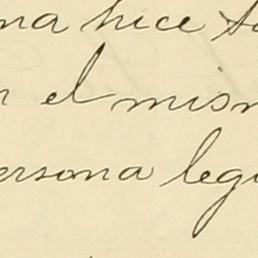 na hice
el mism
ersona leg